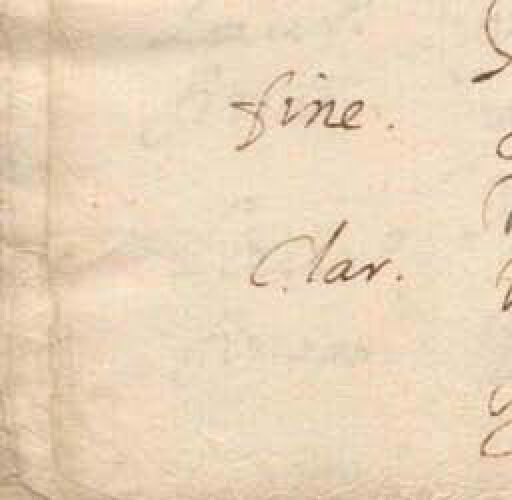 fine.
Clar.